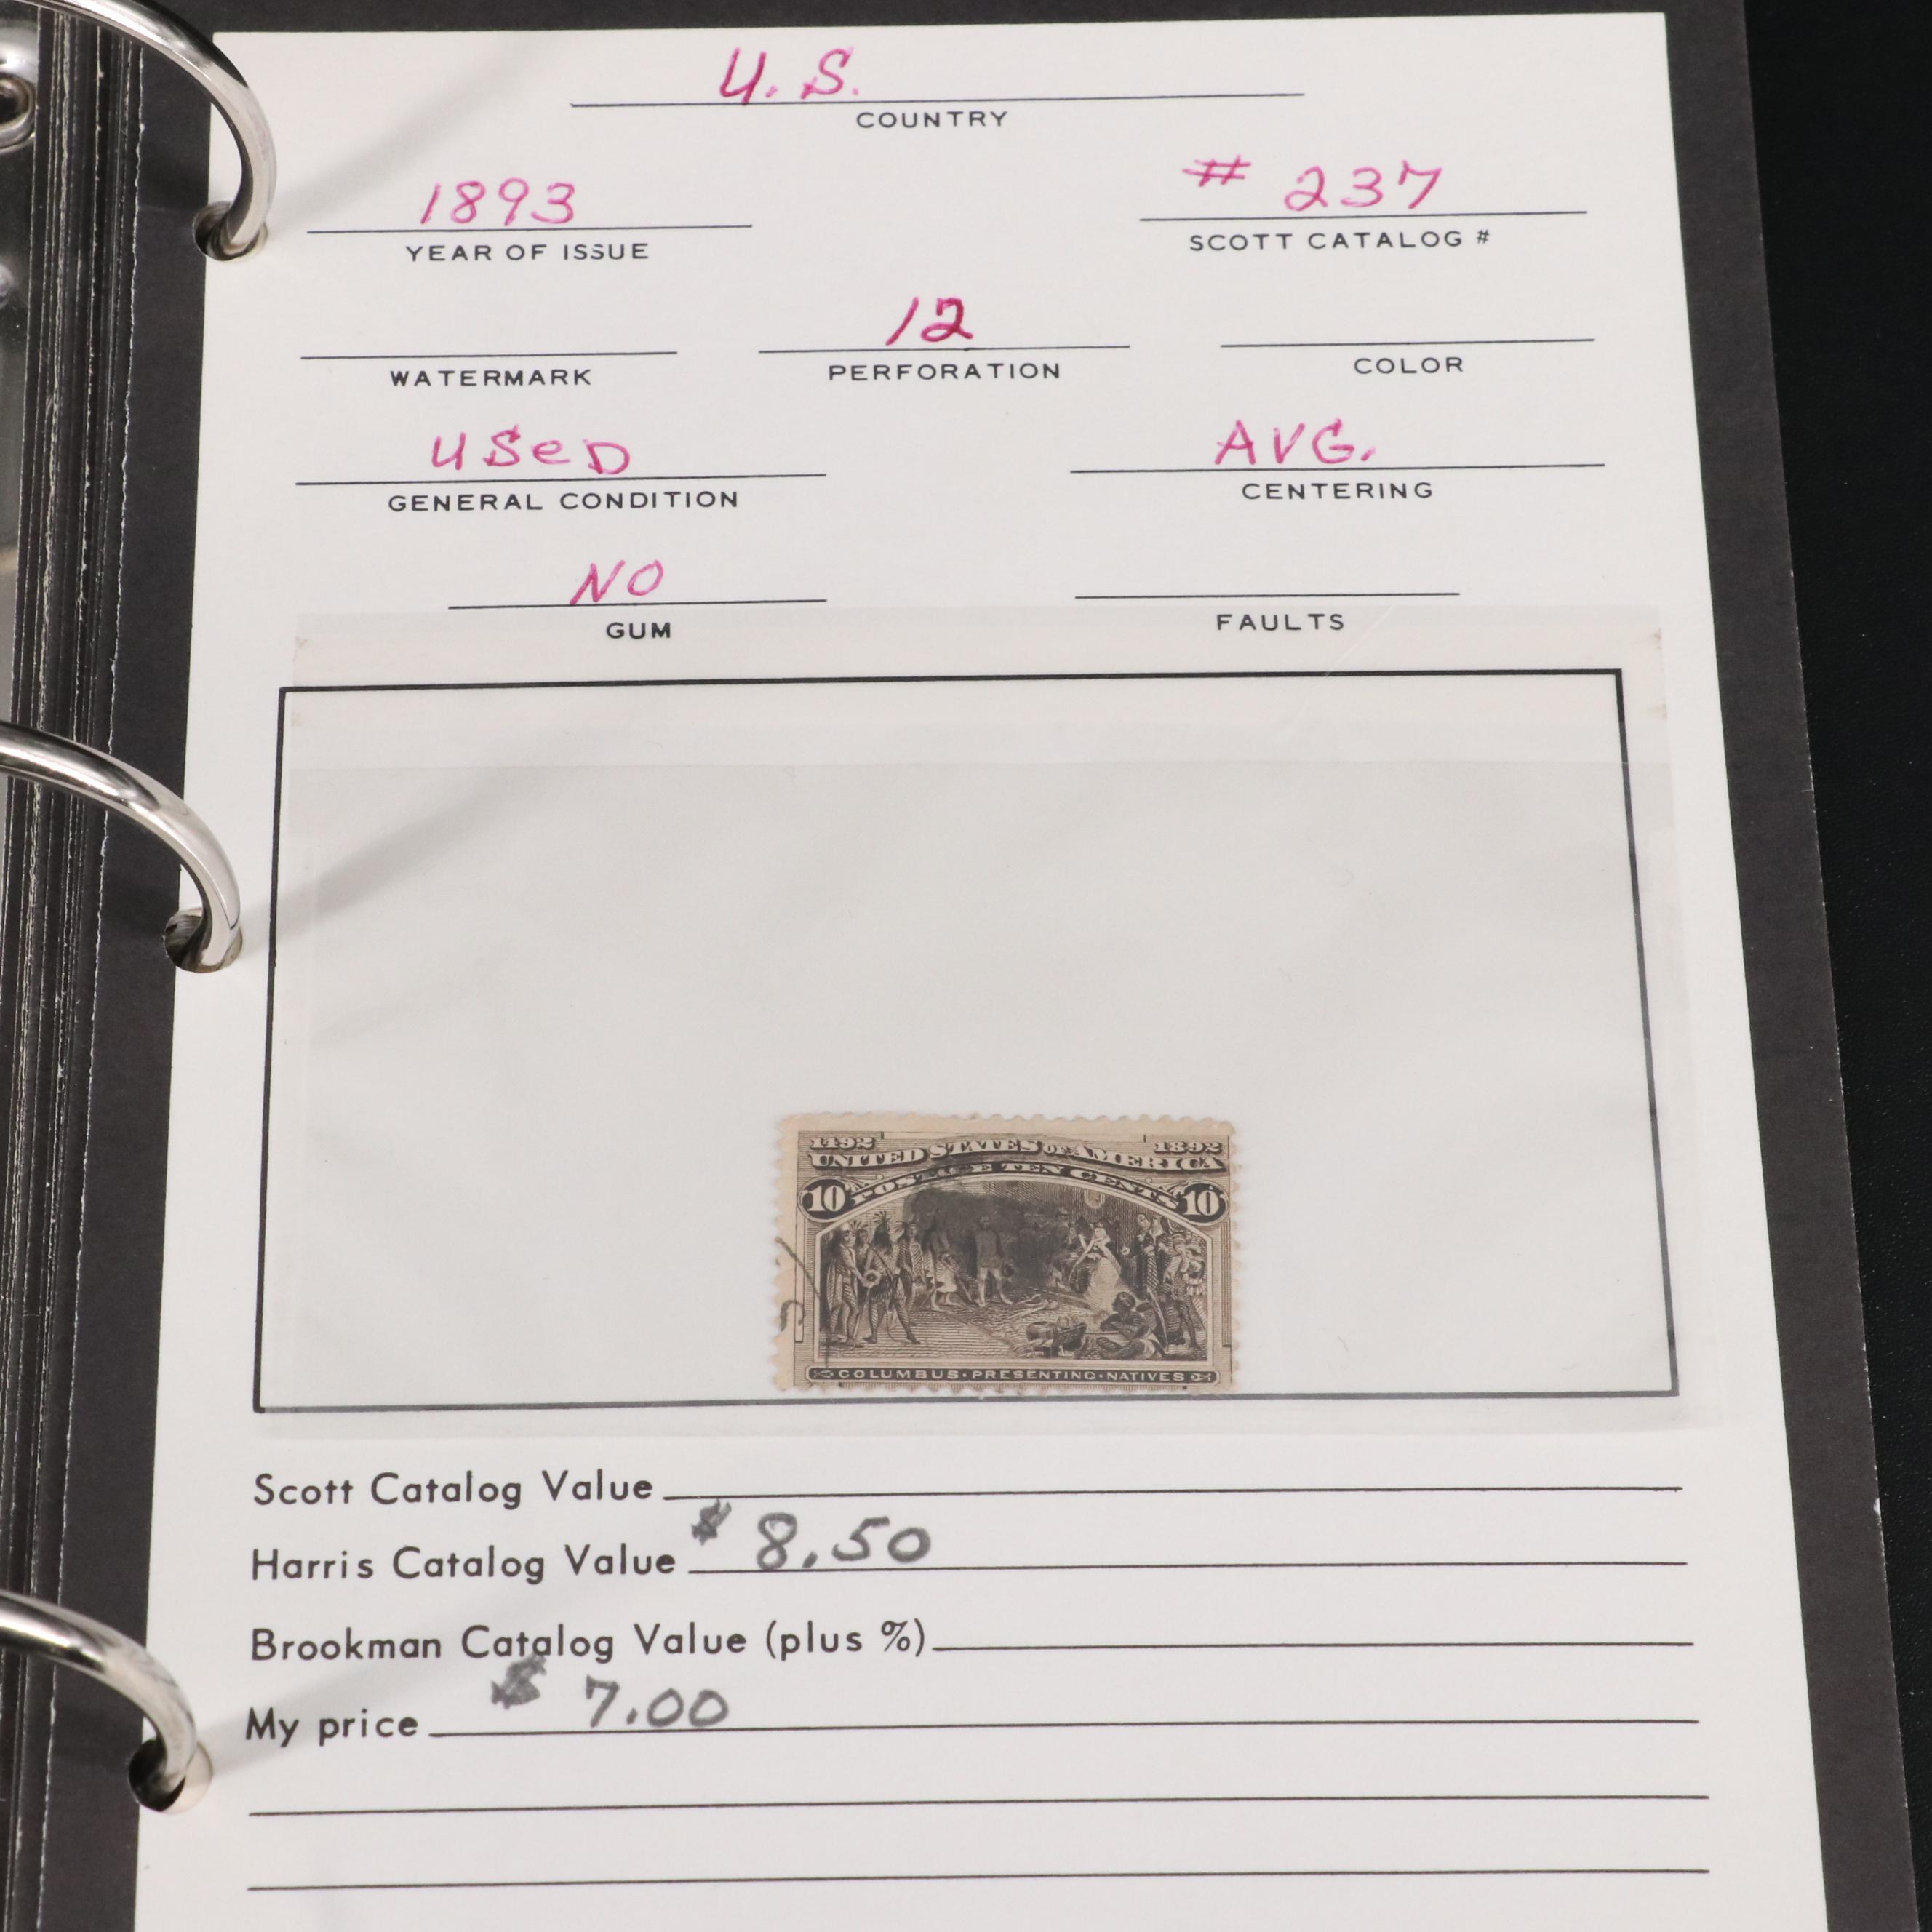 U.S.
COUNTRY
1893 # 237
YEAR OF ISSUE SCOTT CATALOG #
12
WATERMARK PERFORATION COLOR
USeD AVG.
GENERAL CONDITION CENTERING
NO
GUM FAULTS
1492 1892
UNITED STATES OF AMERICA
10 POSTAGE TEN CENTS 10
COLUMBUS·PRESENTING·NATIVES
Scott Catalog Value
Harris Catalog Value $ 8.50
Brookman Catalog Value (plus %)
My price $ 7.00